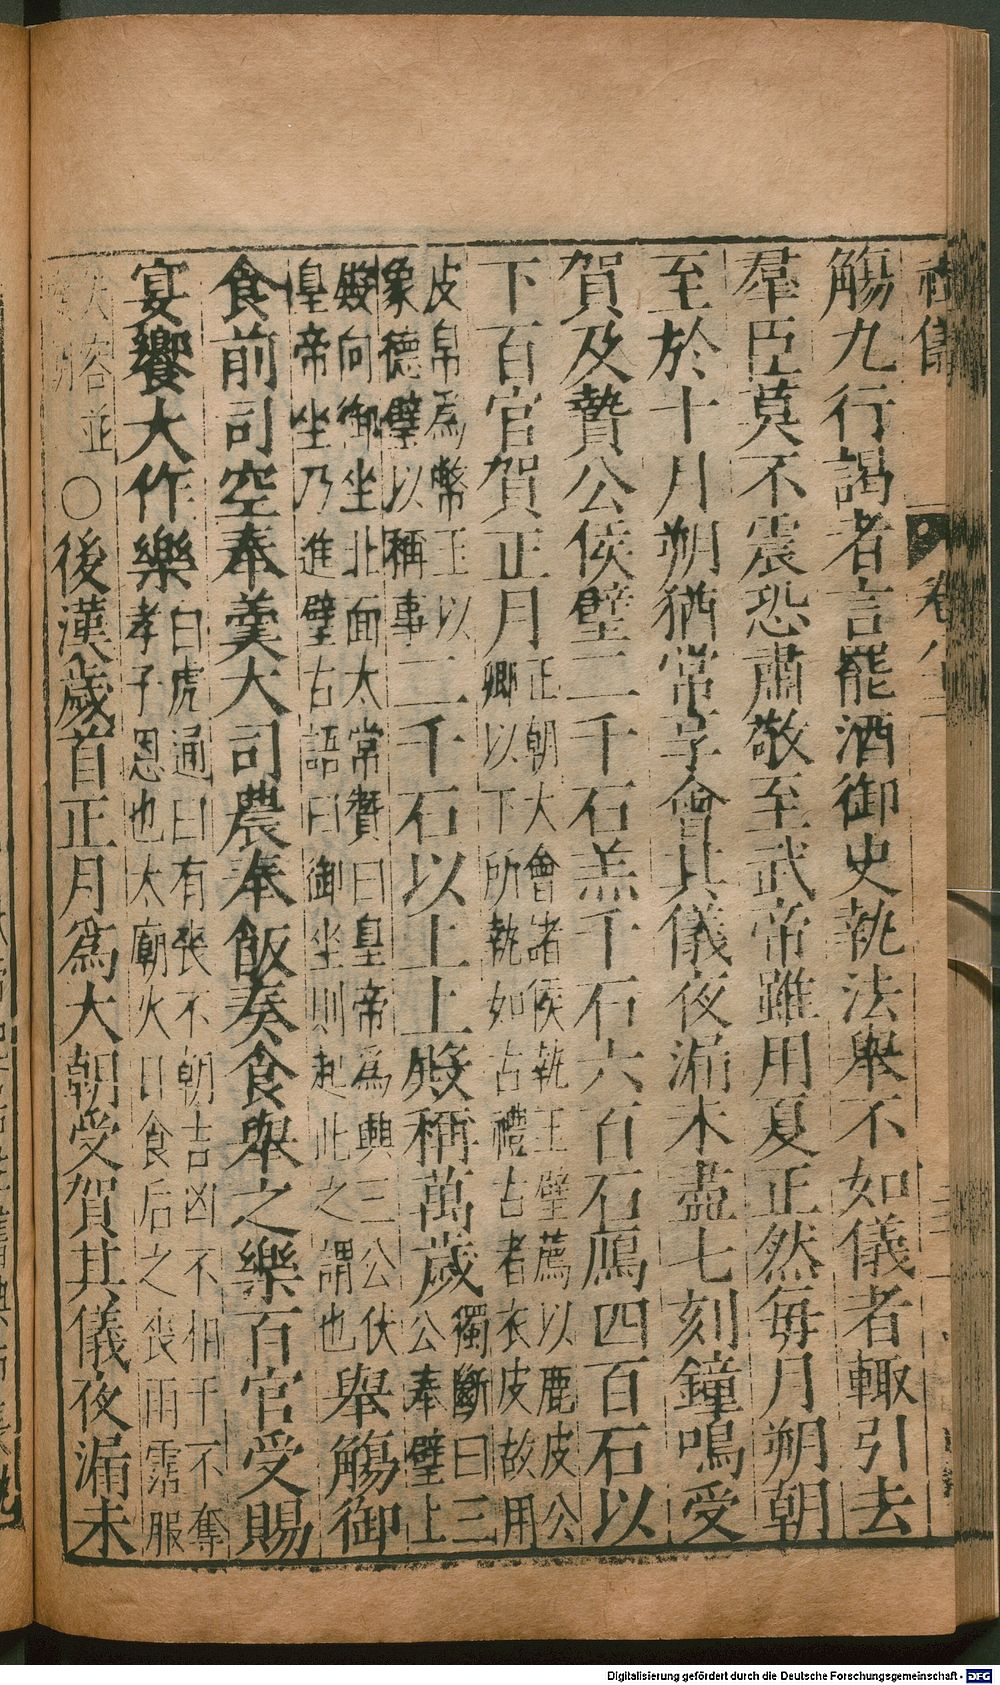 儀 卷八
觴九行謁者言罷酒御史執法舉不如儀者輙引去
羣臣莫不震恐肅敬至武帝雖用夏正然每月朔朝
至於十月朔猶常享會其儀夜漏未盡七刻鐘鳴受
賀及贄公侯璧二千石羔千石六百石鴈四百石以
下百官賀正月正朝大會諸侯執玉璧薦以鹿皮公
卿以下所執如古禮古者衣皮故用
皮帛爲幣玉以
象德璧以稱事二千石以上上殿稱萬歲獨斷曰三
公奉璧上
殿向御坐北面太常贊曰皇帝爲興三公伏
皇帝坐乃進璧古語曰御坐則起此之謂也舉觴御
食前司空奉羹大司農奉飯奏食舉之樂百官受賜
宴饗大作樂曰虎通曰有喪不朝吉凶不相干不奪
孝子恩也太廟火日食后之喪雨霑服
失容並
○後漢歲首正月爲大朝受賀其儀夜漏未
Digitalisierung gefördert durch die Deutsche Forschungsgemeinschaft - DFG